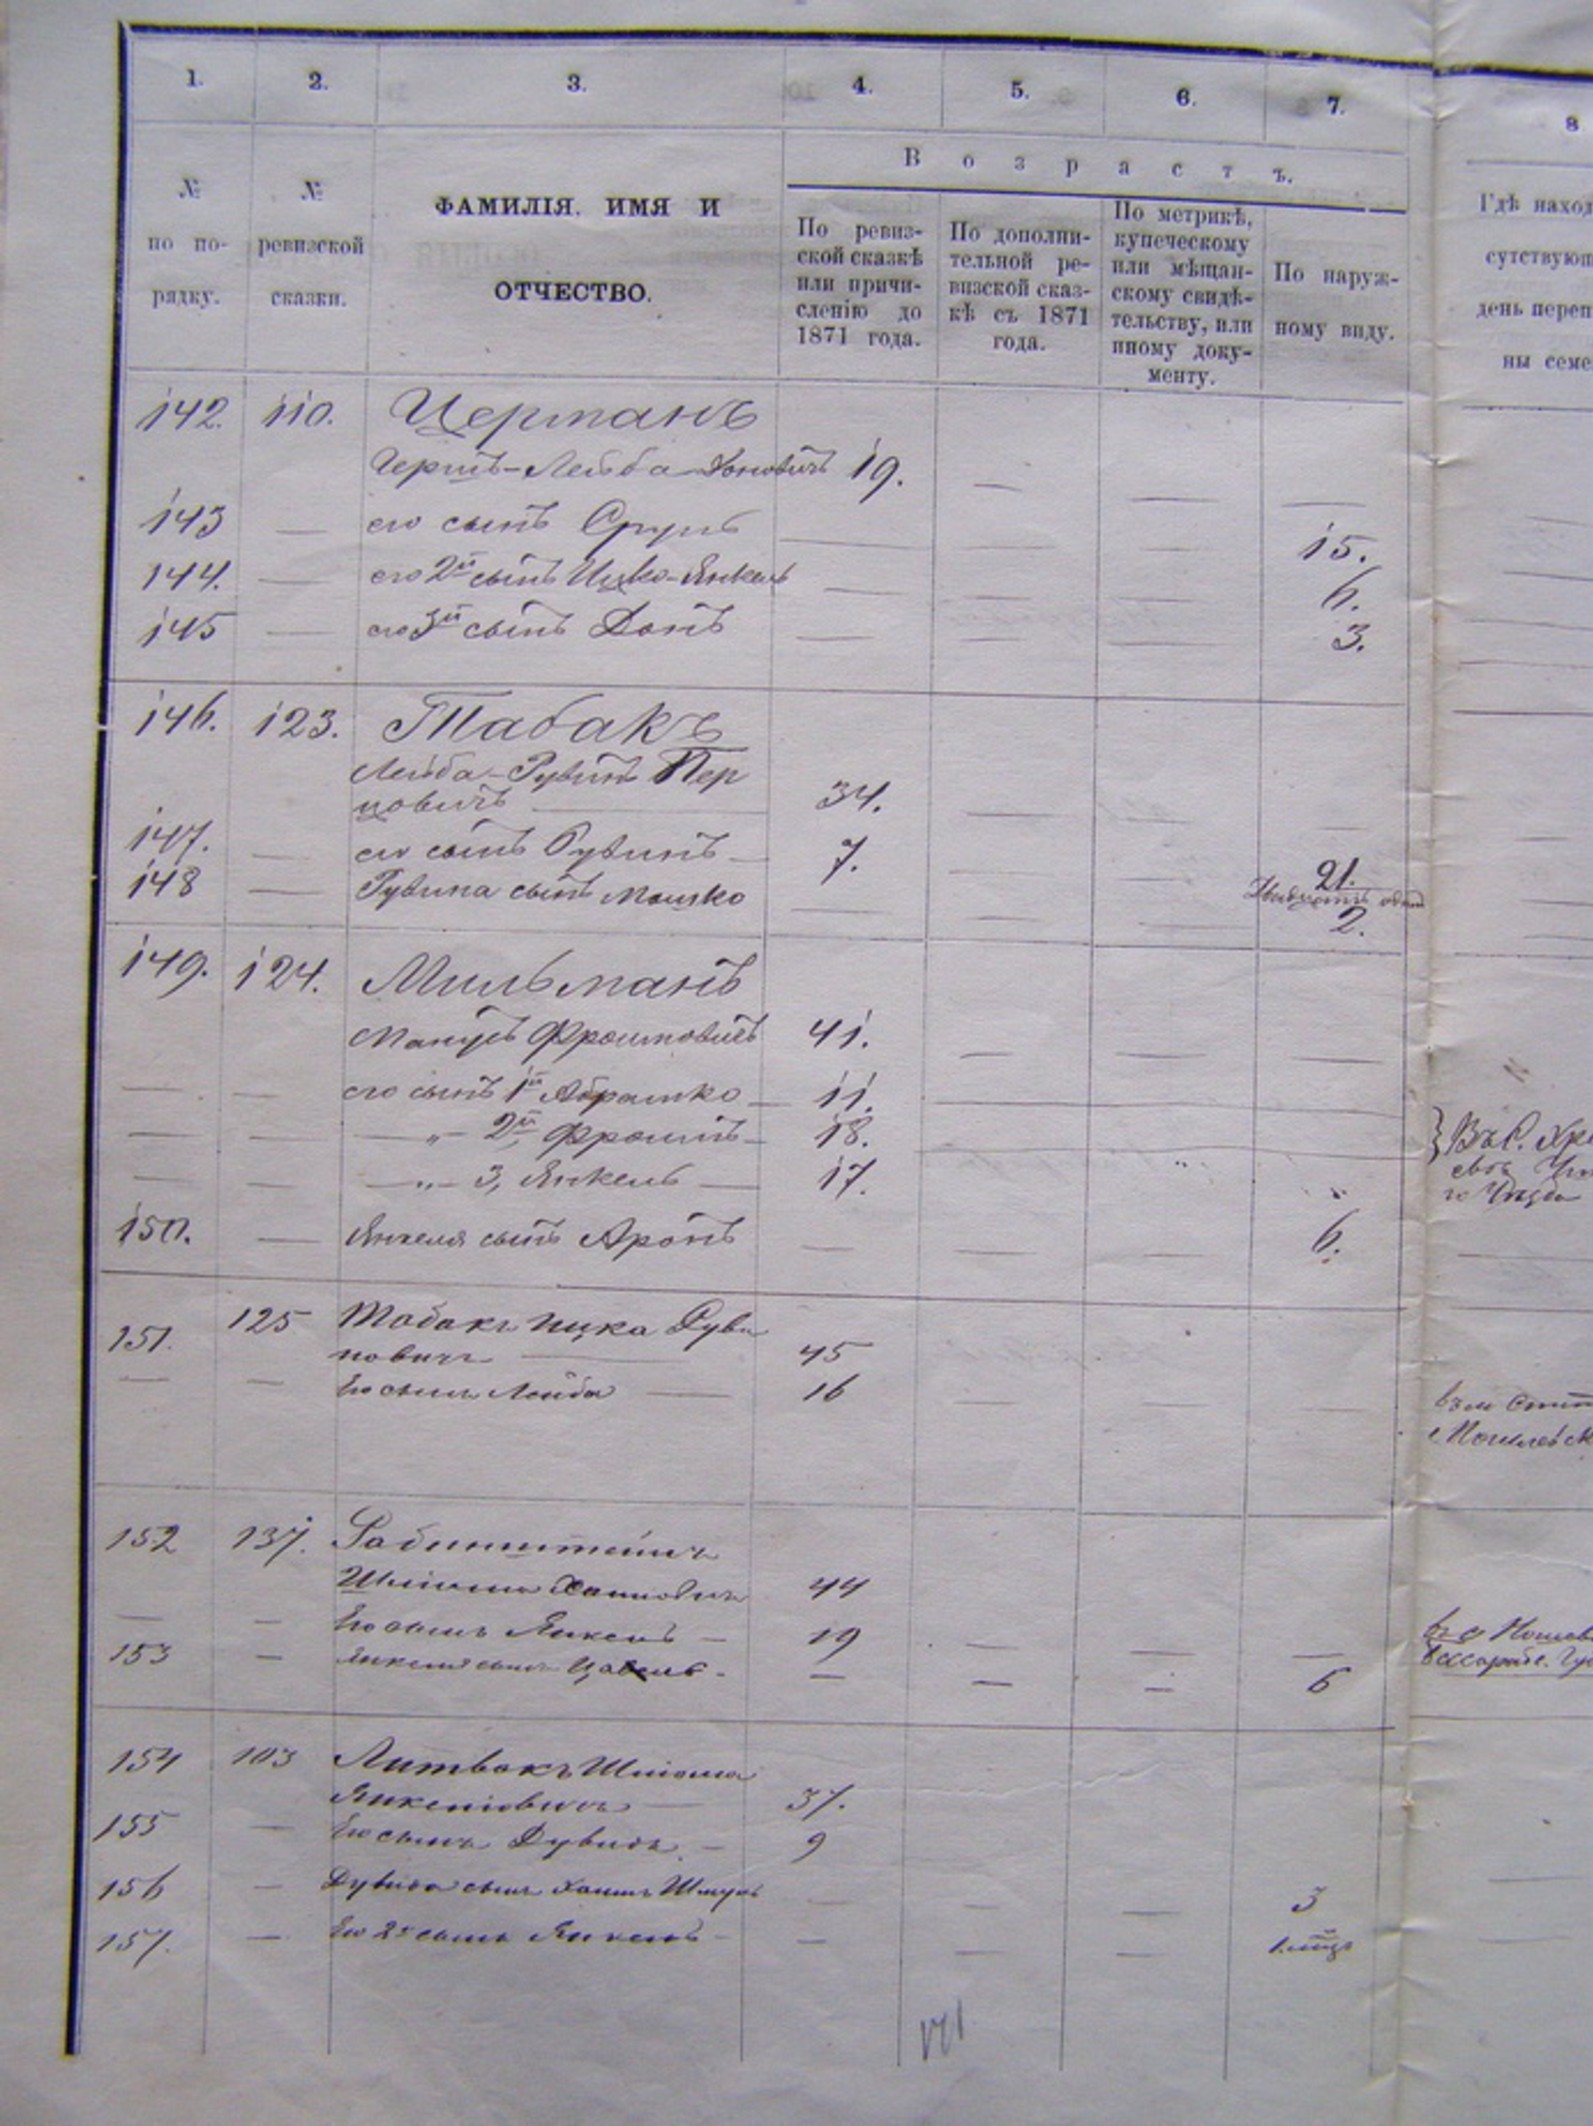 1. 2. 3. 4. 5. 6. 7. 8
№ по по-рядку.
№ ревизской сказки.
ФАМИЛІЯ. ИМЯ И
ОТЧЕСТВО.
Возрастъ.
По ревиз-
ской сказкѣ
или причи-
сленію до
1871 года.
По дополни-
тельной ре-
визской сказ-
кѣ съ 1871
года.
По метрикѣ,
купеческому
или мѣщан-
скому свидѣ-
тельству, или
иному доку-
менту.
По наруж-
ному виду.
Гдѣ наход
сутствующ
день переп
ны семе
142. 110. Церманъ
Гершъ-Лейба 19. — — —
143 — его сынъ Сруль — — — 15.
144. — его 2й сынъ Ицко-Янкель — — — 6.
145 — его 3й сынъ Донъ — — — 3.
146. 123. Табакъ
Лейба-Рувинъ Пер
цовичъ — 34. — — —
147. — его сынъ Рувинъ — 7. — — 21.
Двадцать одинъ
148 — Рувина сынъ Мошко — — — 2.
149. 124. Мильманъ
Манусъ Фроимовичъ 41. — — —
— — его сынъ 1й Абрамко — 11.
— — — „ — 2й Фроимъ — 18.
— — — „ — 3, Янкель — 17.
150. — Янкеля сынъ Аронъ — — — 6.
151. 125 Табакъ Ицка Руви
новичъ — 45
— — Его сынъ Лейба — 16 — — —
152 137. Рабинштейнъ
Шлiома Хаимовичъ 44
— — Его сынъ Янкель — 19 — — —
153 — Янкеля сынъ — — — 6
154 103 Литвакъ Шлiома
Янкелiовичъ — 37.
155 — Его сынъ Дувидъ — 9
156 — Дувида сынъ Хаимъ Шмуль — — — 3
157. — Его 2й сынъ Янкель — — — — 1 мѣц
171